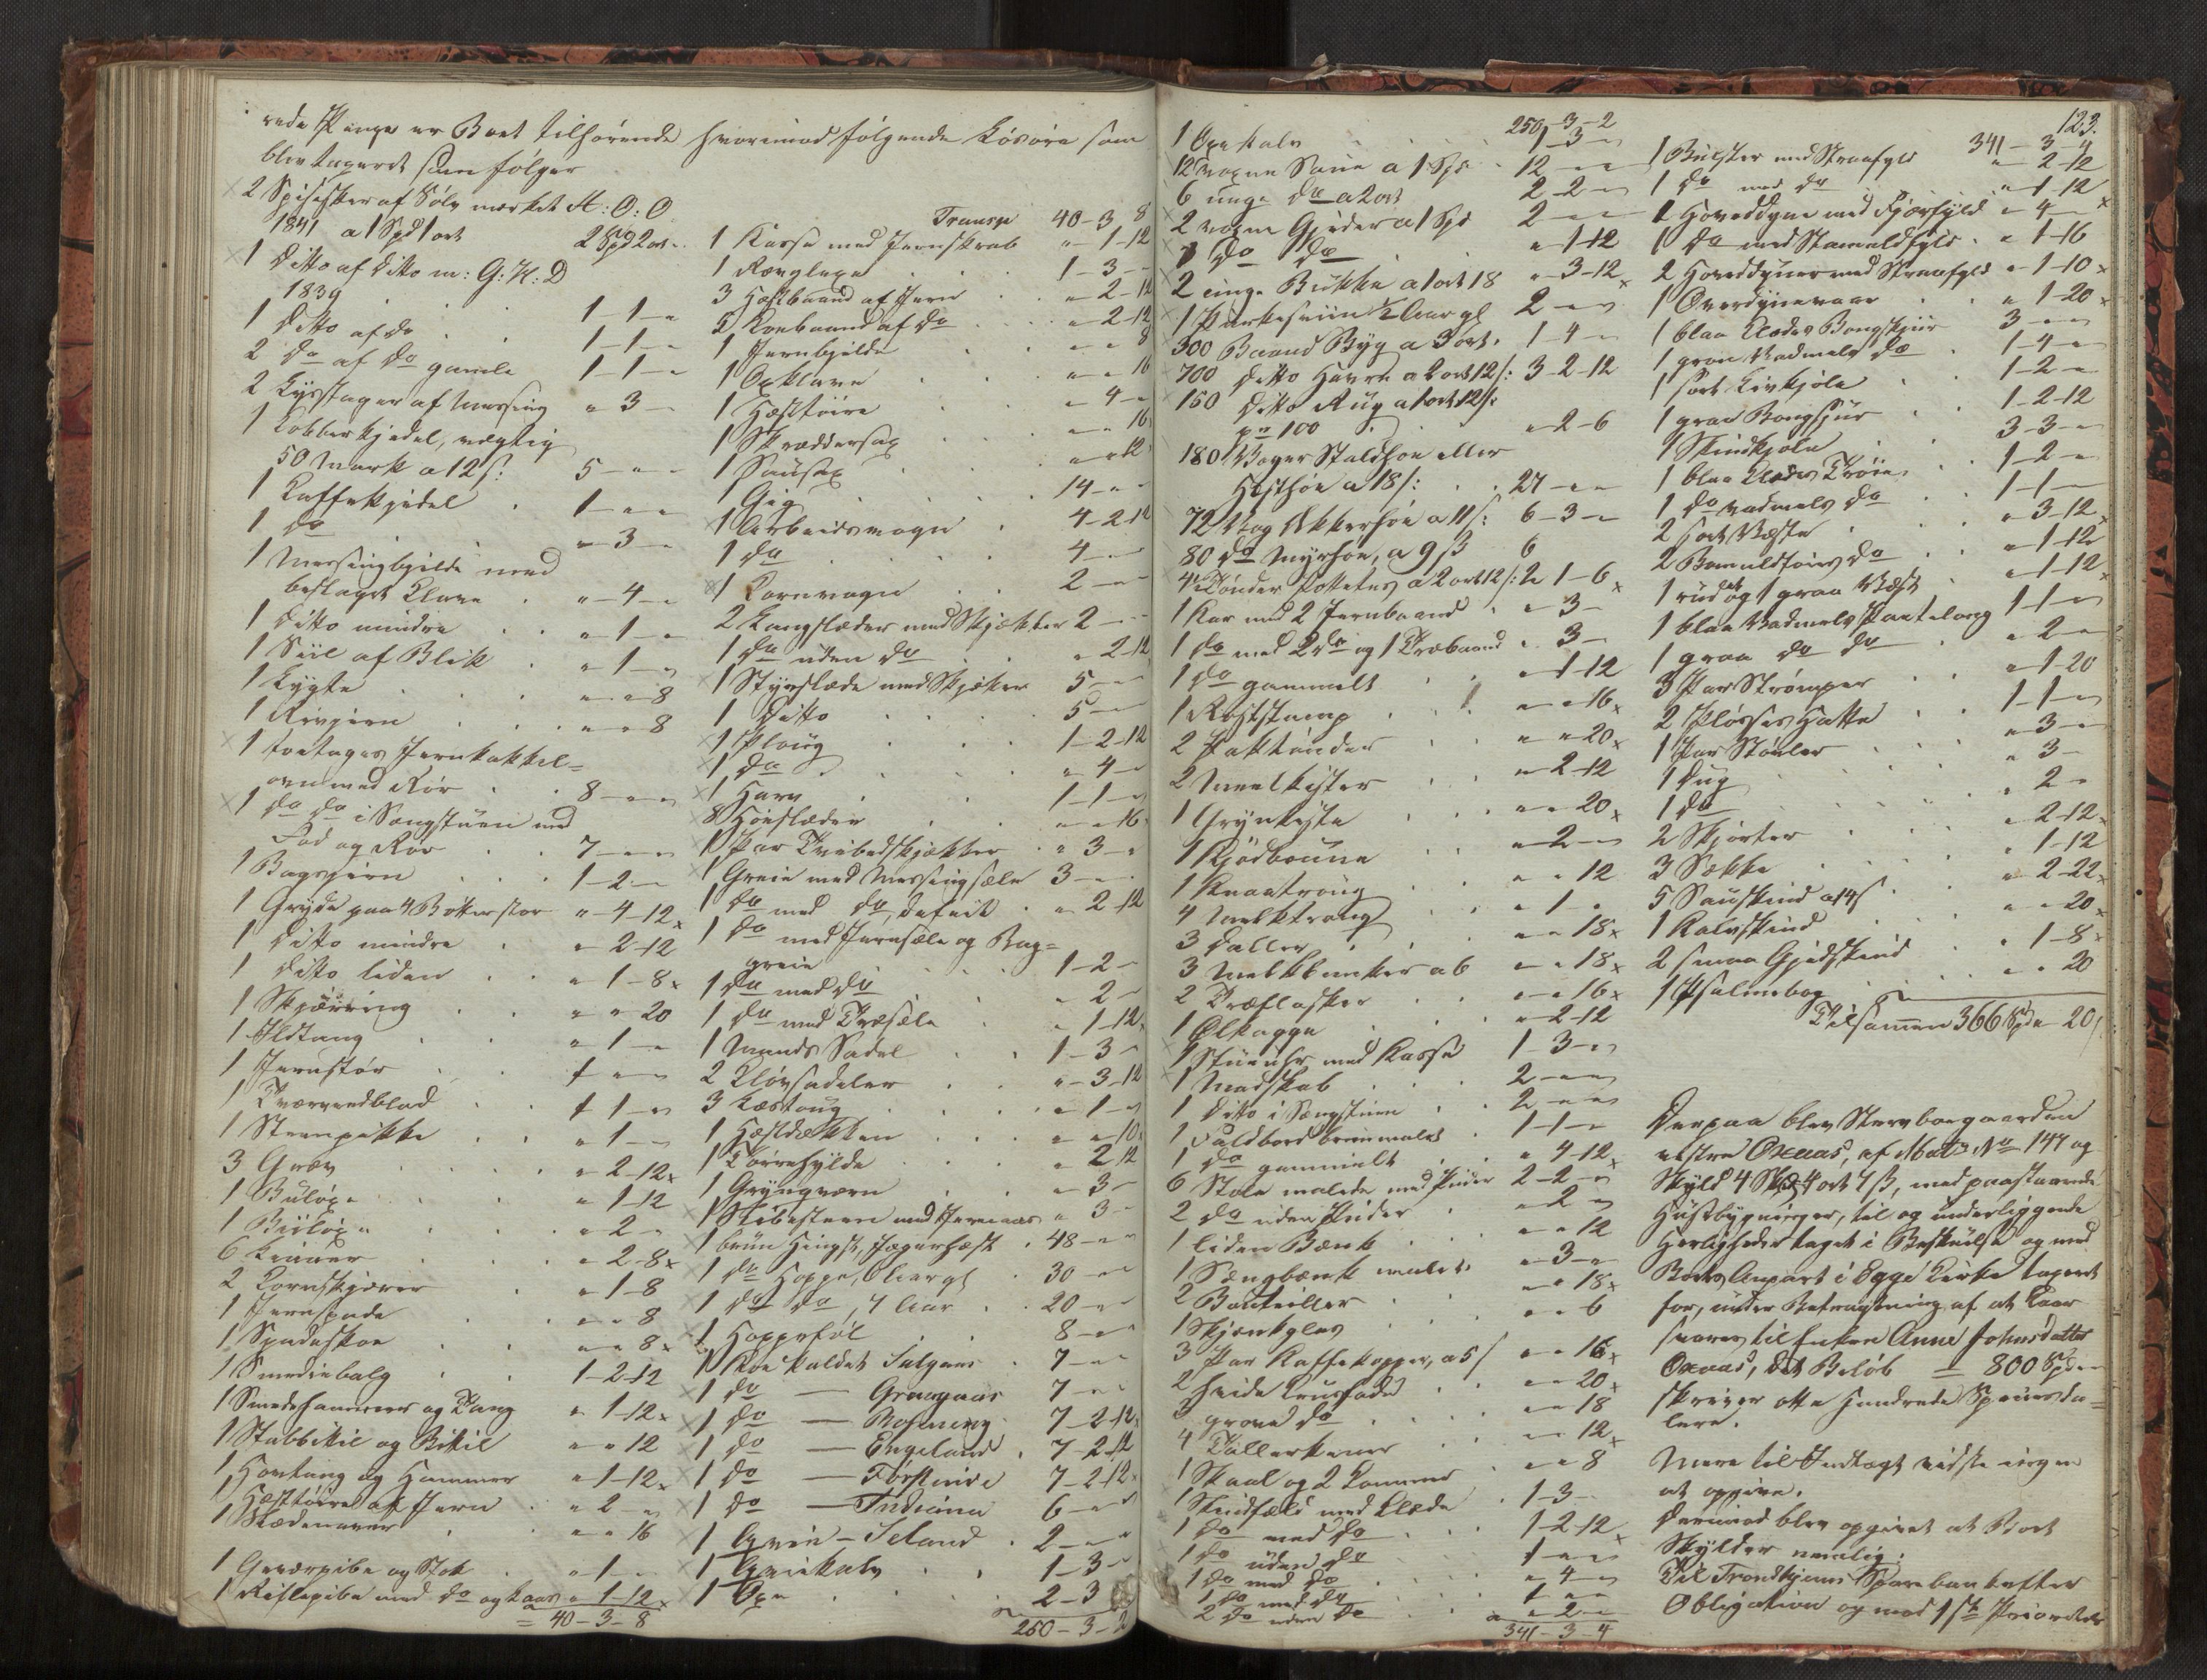 rede Penge er Boet tilhørende hvorimod følgende Løsøre som
blev taxeret som følger
2 Spiseskeer af Sølv mærket A: O: O
1841 a 1 Spd 1 ort 2 Spd 2 ort
1 Ditto af Ditto m: G: K: D
1839 1-1-"
1 Ditto af do 1-1-"
2 do af do gamle 1-1-"
2 Lysstager af Messing "-3-"
1 Kobberkjedel, vægtig
50 Mark a 12 s: 5-"-"
1 Kaffekjedel 1-"-"
1 do "-3-"
1 Messingbjelde med
beslaget Klave "-4-"
1 Ditto mindre "-1-"
1 Siil af Blik "-1-"
1 Lygte "-"-8
1 Rivjern "-"-8
1 toetages Jernkakkel=
ovn med Rør 8-"-"
1 do do i Sængstuen med
Fod og Rør 7-"-"
1 Bagstjern 1-2-"
1 Gryde paa 4 Botter stor "-4-12
1 Ditto mindre "-2-12
1 Ditto liden "-1-8
1 Skjæring "-"-20
1 Ildtang "-1-"
1 Jernstør 1-"-"
1 Tværvedblad 1-1-"
1 Steenpikke "-1-"
3 Græv "-2-12
1 Buløxe "-1-12
1 Biiløxe "-2-"
6 Knive "-2-8
2 Kornskjærer "-1-8
1 Jernspade "-"-8
1 Spadeskoe "-"-8
1 Smediebalg 1-2-12
1 Smedehammer og Tang "-1-12
1 Stabbekiil og Bikiil "-"-12
1 Hovtang og Hammer "-1-12
1 Hesttøire af Jern "-2-"
1 Slædenaver "-"-16
1 Geværpibe og Stok "-1-"
1 Riflepibe med do og Laas "-1-12
= 40-3-8
Transp 40-3-8
1 Kasse med Jernskrab "-1-12
1 Rænglaxe 1-3-"
3 Hestbaand af Jern "-2-12
5 Koebaand af do "-2-12
1 Jernbjelde "-"-8
1 Oxklave "-"-16
1 Hesttøire "-4-"
1 Skræddersax "-"-16
1 Sausax "-"-12
1 Gig 14-"-"
1 Arbeidsvogn 4-2-12
1 do 4-"-"
1 Kornvogn 2-"-"
2 Langslæder med Skjækker 2-"-"
1 do uden do "-2-12
1 Styrslæde med Skjæker 5-"-"
1 Ditto 5-"-"
1 Ploug 1-2-12
1 do "-4-"
1 Harv 1-1-"
8 Høeslæder "-"-16
1 Par Tvibedskjækker "-3-"
1 Greie med Messingsæle 3-"-"
1 do med do, defeit "-2-12
1 do med Jernsæle og Bag=
greie 1-2-"
1 do med do "-2-"
1 do med Træsæle "-1-12
1 Mands Sadel 1-3-"
2 Kløvsadeler "-3-12
3 Læstoug "-1-"
1 Hestdækken "-"-10
1 Tørrehylde "-2-12
1 Grynqværn "-3-"
1 Slibesteen med Jernaas "-3-"
1 bruun Hingst, Jægerhest 48-"-"
1 do Hoppe, Aargl 30-"-"
1 do do, 4 Aar 20-"-"
1 Hoppeføl 8-"-"
1 Koe kaldet Salgaas 7-"-"
1 do — Graagaas 7-"-"
1 do — Rosning 7-2-12
1 do — Engeland 7-2-12
1 do — Førstinde 7-2-12
1 do — Indiana 6-"-"
1 Qvie — Seland 2-"-"
1 Qviekalv 1-3-"
1 Oxe 2-3
250-3-2
123.
250-3-2
1 Oxekalv 1-3-"
12 voxne Saue a 1 Spd 12-"-"
6 unge do a 2 ort 2-2-"
2 voxne Gjeder a 1 Spd 2-"-"
1 do do "-1-12
2 unge Bukke a 1 ort 18 "-3-12
1 Purkesviin ½ Aar gl 2-"-"
300 Baand Byg a 3 ort 1-4-"
700 Ditto Havre a 2 ort 12 s: 3-2-12
150 Ditto Rug a 1 ort 12 s:
pr 100 "-2-6
180 Voger Staldhøe eller
Hesthøe a 18 s: 27-"-"
72 Vog Ekkerhøe a 11 s: 6-3-"
80 do Myrhøe, a 9 s 6
4½ Tønder Potetes a 2 ort 12 s: 2-1-6
1 Kar med 2 Jernbaand "-3-"
1 do med 2 do og 1 Træbaand "-3-"
1 do gammelt "-1-12
1 Roststamp "-"-16
2 Saltønder "-"-20
2 Meelkister "-2-12
1 Grynkiste "-"-20
1 Kjødbrune "-2-"
1 Knaatroug "-"-12
4 Melktroug "-1-"
3 Daller "-"-18
3 Melkbunker a 6 "-"-18
2 Træflasker "-"-16
1 Ølkagge "-2-12
1 Stueuhr med Kasse 1-3-"
1 Madskab 2-"-"
1 Ditto i Sængstuen 2-"-"
1 Foldbord bruunmalet 1-1-"
1 do gammelt "-4-12
6 Stole malede med Puder 2-2-"
2 do uden Puder "-2-"
1 liden Bænk "-"-12
1 Sængbænk malet "-3-"
2 Bouteiller "-"-18
1 Skjænkglas "-"-6
3 Par Kaffekopper, a 5 s "-"-16
2 hvide Leerfade "-"-20
3 grove do "-"-18
4 Tallerkener "-"-12
1 Skaal og 2 Kommer "-"-8
1 Skindfæld med Klæde 1-3-"
1 do med do 1-2-12
1 do uden do 1-"-"
1 do med do "-4-"
1 do med do 1-"-"
2 do uden do "-2-"
341-3-4
341-3-4
1 Bulster med Straafyld "-2-12
1 do med do "-1-12
1 Hoveddyne med Fjærfyld "-4-"
1 do med Stamuldfyld "-1-16
2 Hoveddyner med Straafyld "-1-10
1 Overdynevaar "-1-20
1 blaa Klædes Bongskjur 3-"-"
1 graa Vadmels do 1-4-"
1 sort Livkjole 1-2-"
1 graa Bongsjur 1-2-12
1 Skindkjole 3-3-"
1 blaa Klædes Trøie 1-2-"
1 do vadmels do 1-1-"
2 sort Veste "-3-12
2 Bomuldtøies do "-1-12
1 rudet og 1 graa Vest "-1-12
1 blaa Vadmels Pantelong 1-1-"
1 graa do do "-2-"
3 Par Strømper "-1-20
2 Pløsses Hatte 1-1-"
1 Par Støvler "-3-"
1 Dug "-3-
1 do "-2-"
2 Skjorter "-2-12
3 Sække "-1-12
5 Sauskind a 14 s "-2-22
1 Kalvskind "-"-20
2 smaa Gjedskind "-1-8
1 Psalmebog "-"-20
Tilsammen 366 Spd " 20 s
Derpaa blev Stervboegaarden
vestre Oxaas, af Matr. No 147 og
Skyld 4 Skd 4 ort 4 s, med paastaaende
Huusbygninger, til og underliggende
Herligheder taget i Beskuelse og med
Boets Anpart i Egge Kirke taxeret
for, under Betragtning af at Kaar
svares til Enken Anne Johnsdatter
Oxaas, det Beløb = 800 Spd
skriver otte hundrede Speciesda=
lere.
Mere til Indtægt vidste ingen
at opgive.
Derimod blev opgivet at Boet
Skylder nemlig:
Til Trondhjems Sparebank efter
Obligation og mod 1ste Prioritets